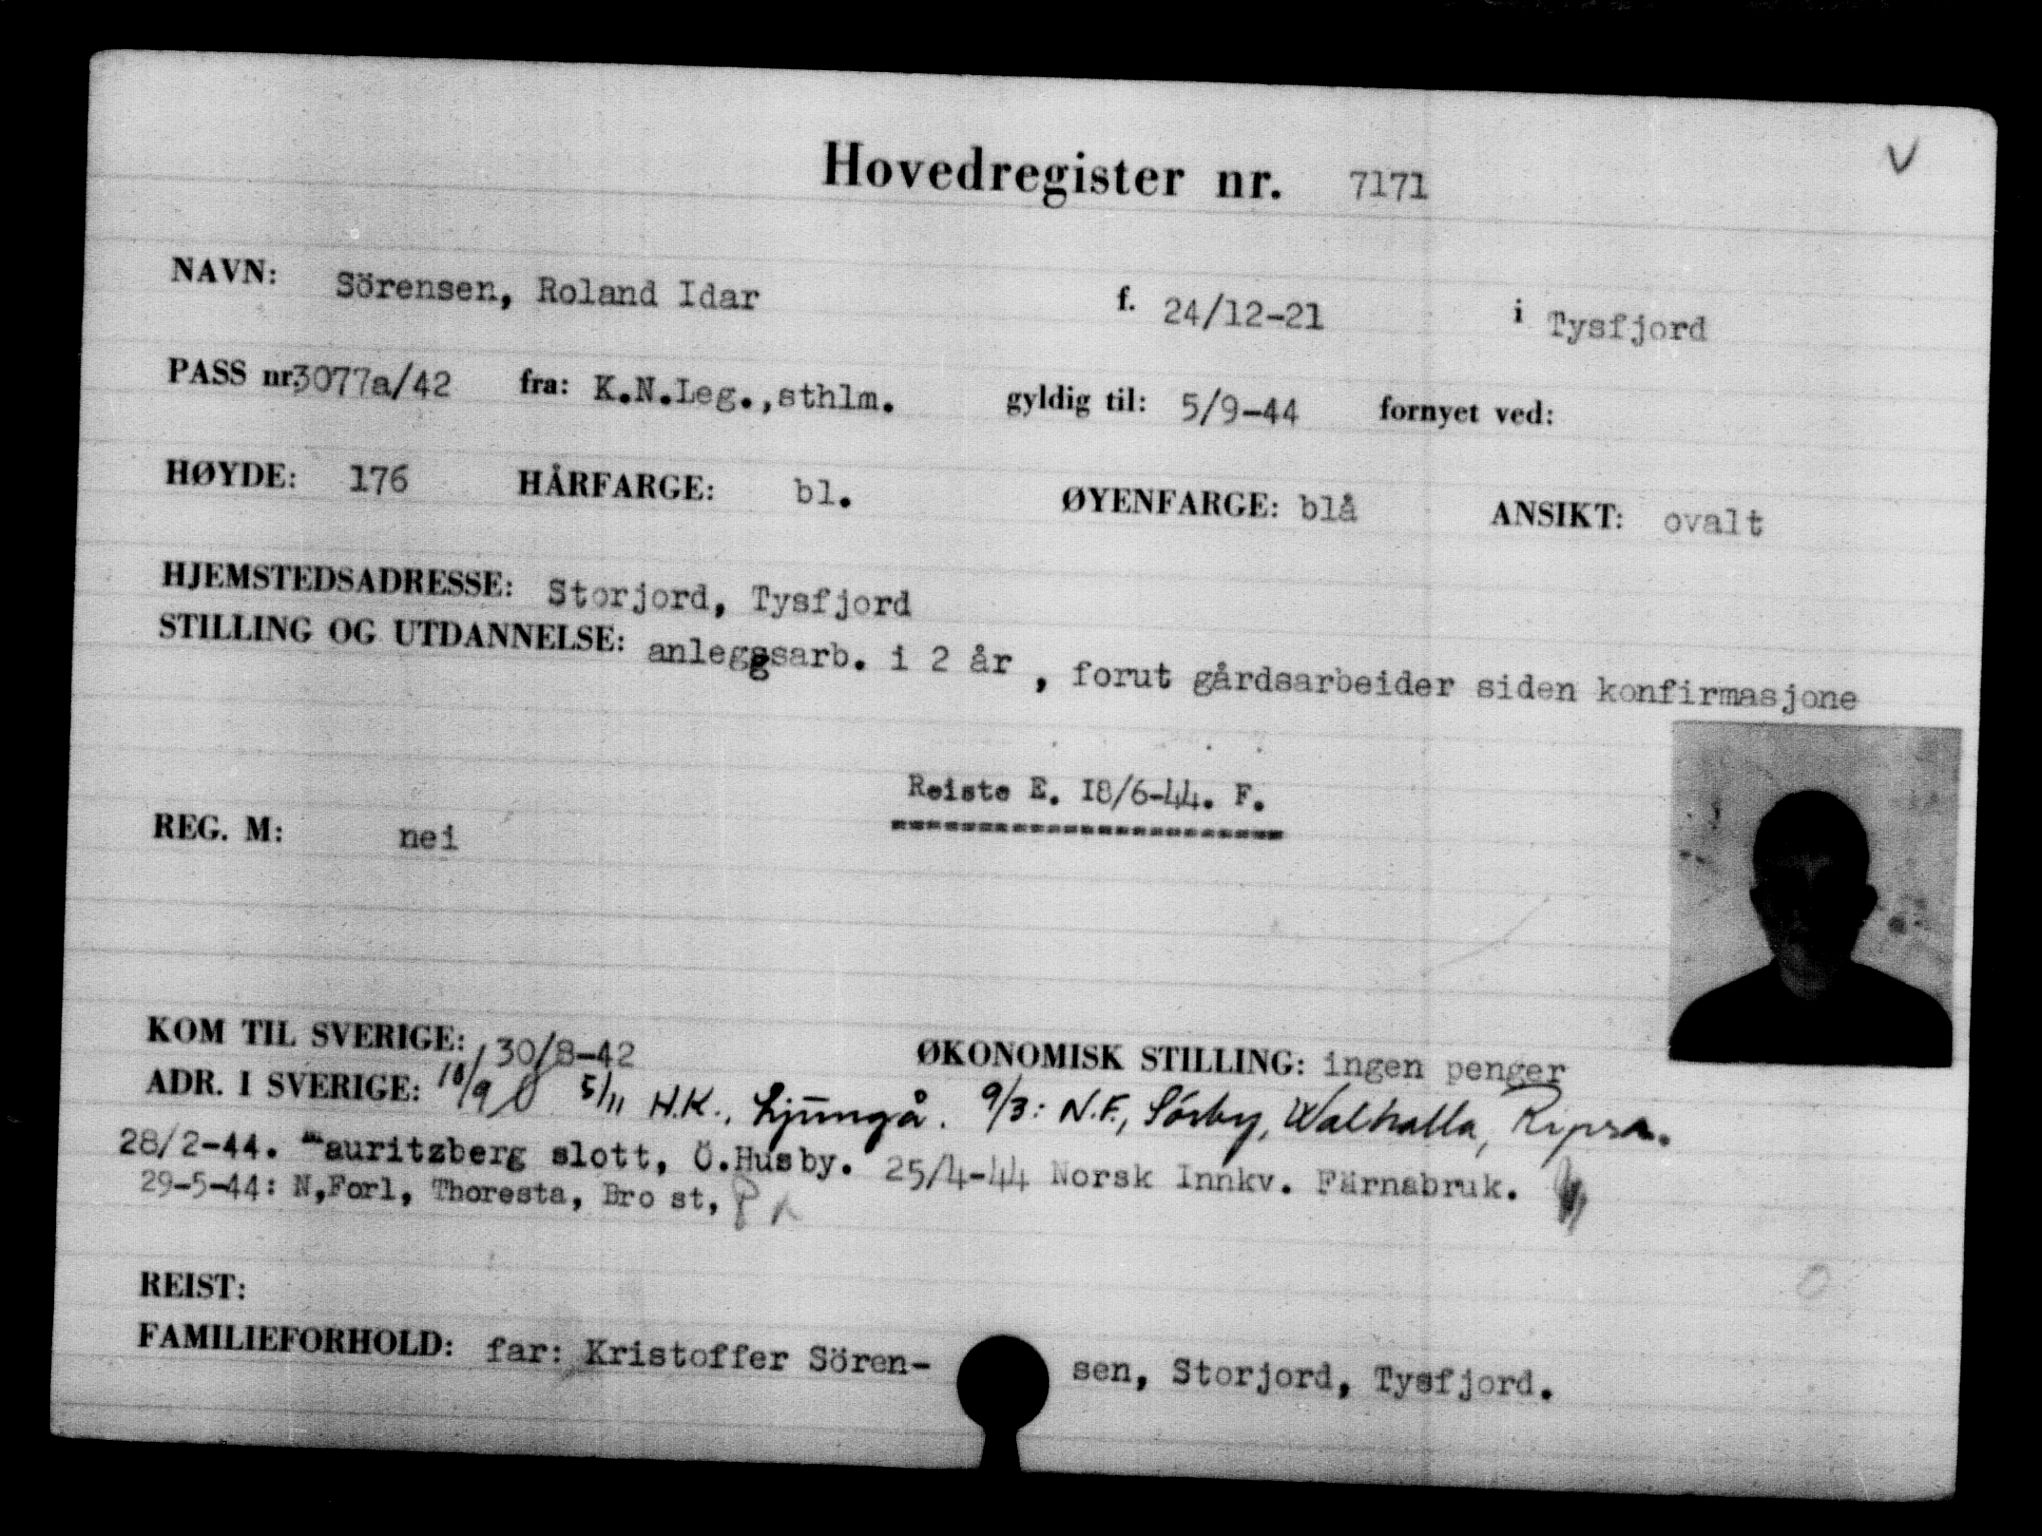 Hovedregister nr. 7171 V
NAVN: Sörensen, Roland Idar f. 24/12-21 i Tysfjord
PASS nr. 3077a/42 fra: K.N.Leg.,sthlm. gyldig til: 5/9-44 fornyet ved:
HØYDE: 176 HÅRFARGE: bl. ØYENFARGE: blå ANSIKT: ovalt
HJEMSTEDSADRESSE: Storjord, Tysfjord
STILLING OG UTDANNELSE: anleggsarb. i 2 år , forut gårdsarbeider siden konfirmasjone
Reiste E. 18/6-44. F.
REG. M: nei
KOM TIL SVERIGE: 30/8-42 ØKONOMISK STILLING: ingen penger
ADR. I SVERIGE: 18/9 Ö 5/11 H.K., Ljungå. 9/3: N.F., Sörby, Walhalla, Ripsa.
28/2-44. Mauritzberg slott, Ö.Husby. 25/4-44 Norsk Innkv. Färnabruk.
29-5-44: N,Forl, Thoresta, Bro st,
REIST:
FAMILIEFORHOLD: far: Kristoffer Sören- sen, Storjord, Tysfjord.